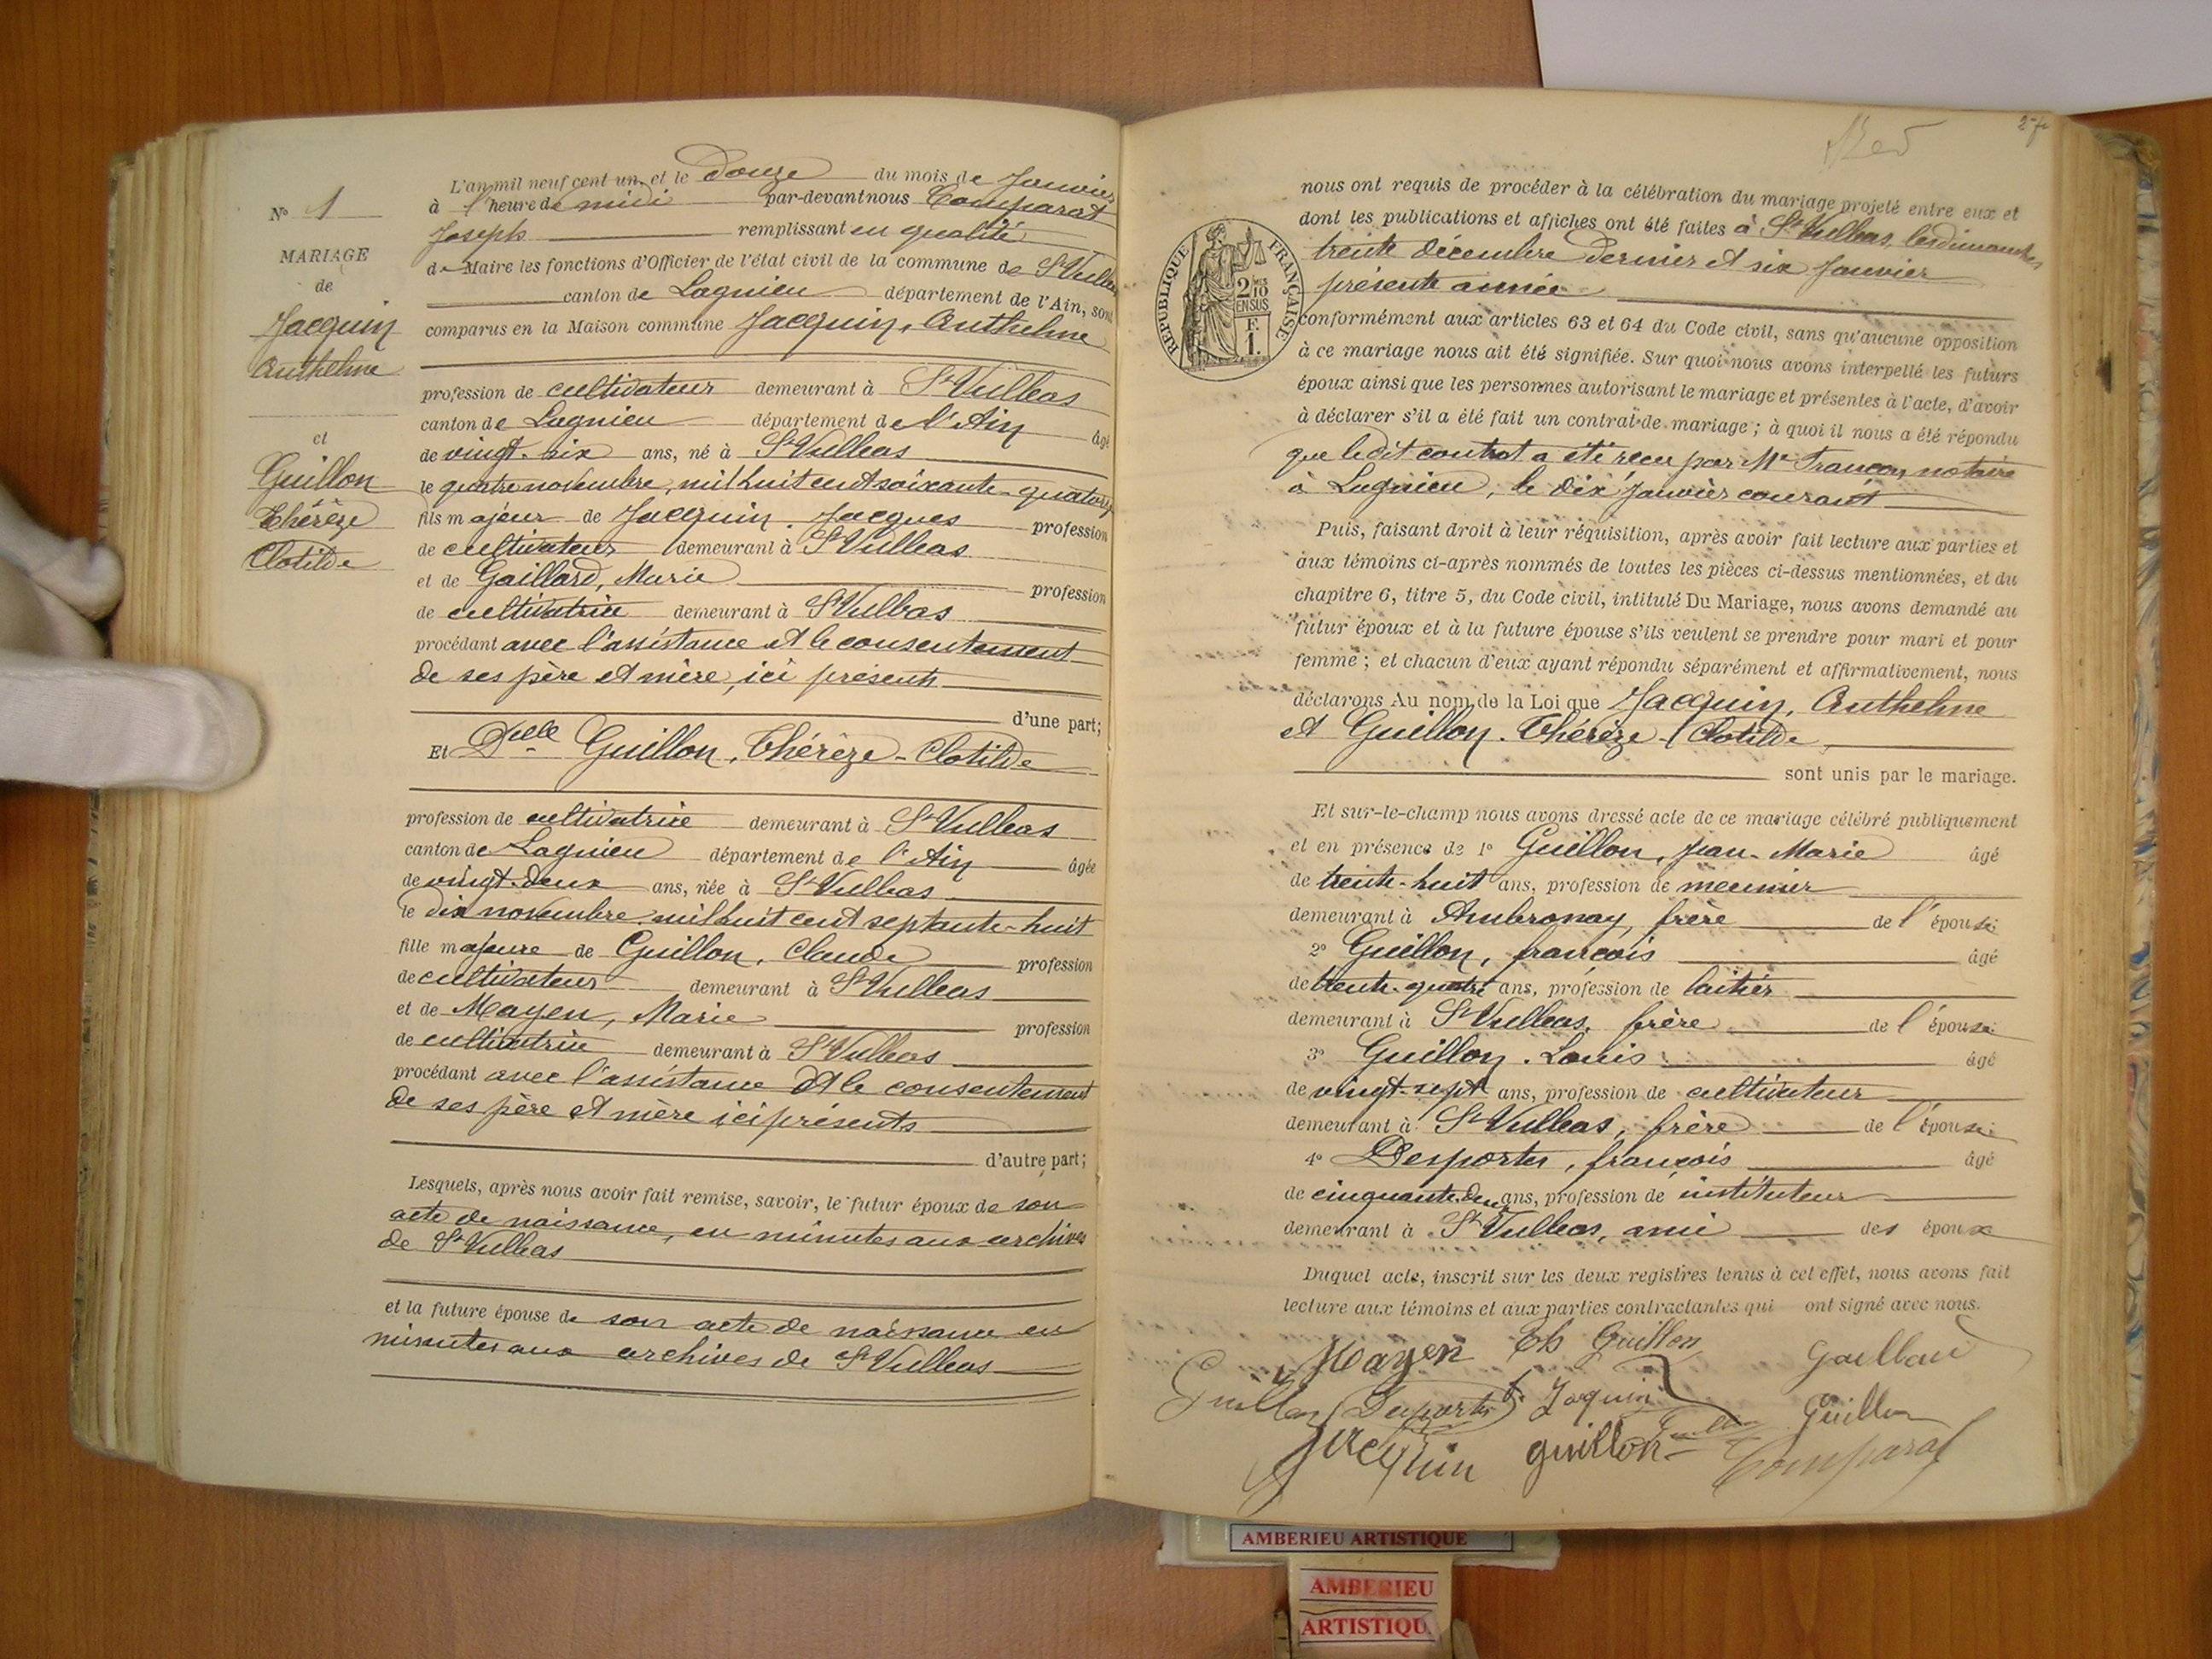 N° 1
MARIAGE
de
Jacquin
Anthelme
et
Guillon
Thérèze
Clotilde
L'an mil neuf cent un, et le Douze du mois de Janvier
à l'heure de midi par-devant nous Comparat
Joseph remplissant en qualité
de Maire les fonctions d'Officier de l'état civil de la commune de St Vulbas
canton de Lagnieu département de l'Ain, sont
comparus en la Maison commune Jacquin, Anthelme
profession de cultivateur demeurant à St Vulbas
canton de Lagnieu département de l'Ain âgé
de vingt-six ans, né à St Vulbas
le quatre novembre, mil huit cent soixante-quatorze
fils majeur de Jacquin, Jacques profession
de cultivateur demeurant à St Vulbas
et de Gaillard, Marie profession
de cultivatrice demeurant à St Vulbas
procédant avec l'assistance et le consentement
de ses père et mère, ici présents
d'une part;
Et Delle Guillon, Thérèze-Clotilde
profession de cultivatrice demeurant à St Vulbas
canton de Lagnieu département de l'Ain âgée
de vingt-deux ans, née à St Vulbas
le dix novembre mil huit cent septante-huit
fille majeure de Guillon, Claude profession
de cultivateur demeurant à St Vulbas
et de Mayen, Marie profession
de cultivatrice demeurant à St Vulbas
procédant avec l'assistance et le consentement
de ses père et mère ici présents
d'autre part;
Lesquels, après nous avoir fait remise, savoir, le futur époux de son
acte de naissance, en minutes aux archives
de St Vulbas
et la future épouse de son acte de naissance en
minutes aux archives de St Vulbas
nous ont requis de procéder à la célébration du mariage projeté entre eux et
dont les publications et affiches ont été faites à St Vulbas, les dimanches
trente décembre dernier et six Janvier
présente année
RÉPUBLIQUE FRANÇAISE
2/10
EN SUS
F.
1.
conformément aux articles 63 et 64 du Code civil, sans qu'aucune opposition
à ce mariage nous ait été signifiée. Sur quoi nous avons interpellé les futurs
époux ainsi que les personnes autorisant le mariage et présentes à l'acte, d'avoir
à déclarer s'il a été fait un contrat de mariage; à quoi il nous a été répondu
que le dit contrat a été reçu par Me Françon, notaire
à Lagnieu, le dix Janvier courant
Puis, faisant droit à leur réquisition, après avoir fait lecture aux parties et
aux témoins ci-après nommés de toutes les pièces ci-dessus mentionnées, et du
chapitre 6, titre 5, du Code civil, intitulé Du Mariage, nous avons demandé au
futur époux et à la future épouse s'ils veulent se prendre pour mari et pour
femme; et chacun d'eux ayant répondu séparément et affirmativement, nous
déclarons Au nom de la Loi que Jacquin, Anthelme
et Guillon. Thérèze Clotilde,
sont unis par le mariage.
Et sur-le-champ nous avons dressé acte de ce mariage célébré publiquement
et en présence de 1° Guillon, Jean-Marie âgé
de trente-huit ans, profession de meunier
demeurant à Ambronay, frère de l'épouse
2° Guillon, françois âgé
de trente-quatre ans, profession de laitier
demeurant à St Vulbas, frère de l'épouse
3° Guillon. Louis âgé
de vingt-sept ans, profession de cultivateur
demeurant à St Vulbas, frère de l'épouse
4° Desportes, françois âgé
de cinquante-deux ans, profession de instituteur
demeurant à St Vulbas, ami des époux
Duquel acte, inscrit sur les deux registres tenus à cet effet, nous avons fait
lecture aux témoins et aux parties contractantes qui ont signé avec nous.
Mayen Th Guillon Gaillard
Guillon Desportes f. Jaquin Guillon
Jacquin guillon Comparat
AMBERIEU ARTISTIQUE
AMBERIEU
ARTISTIQU